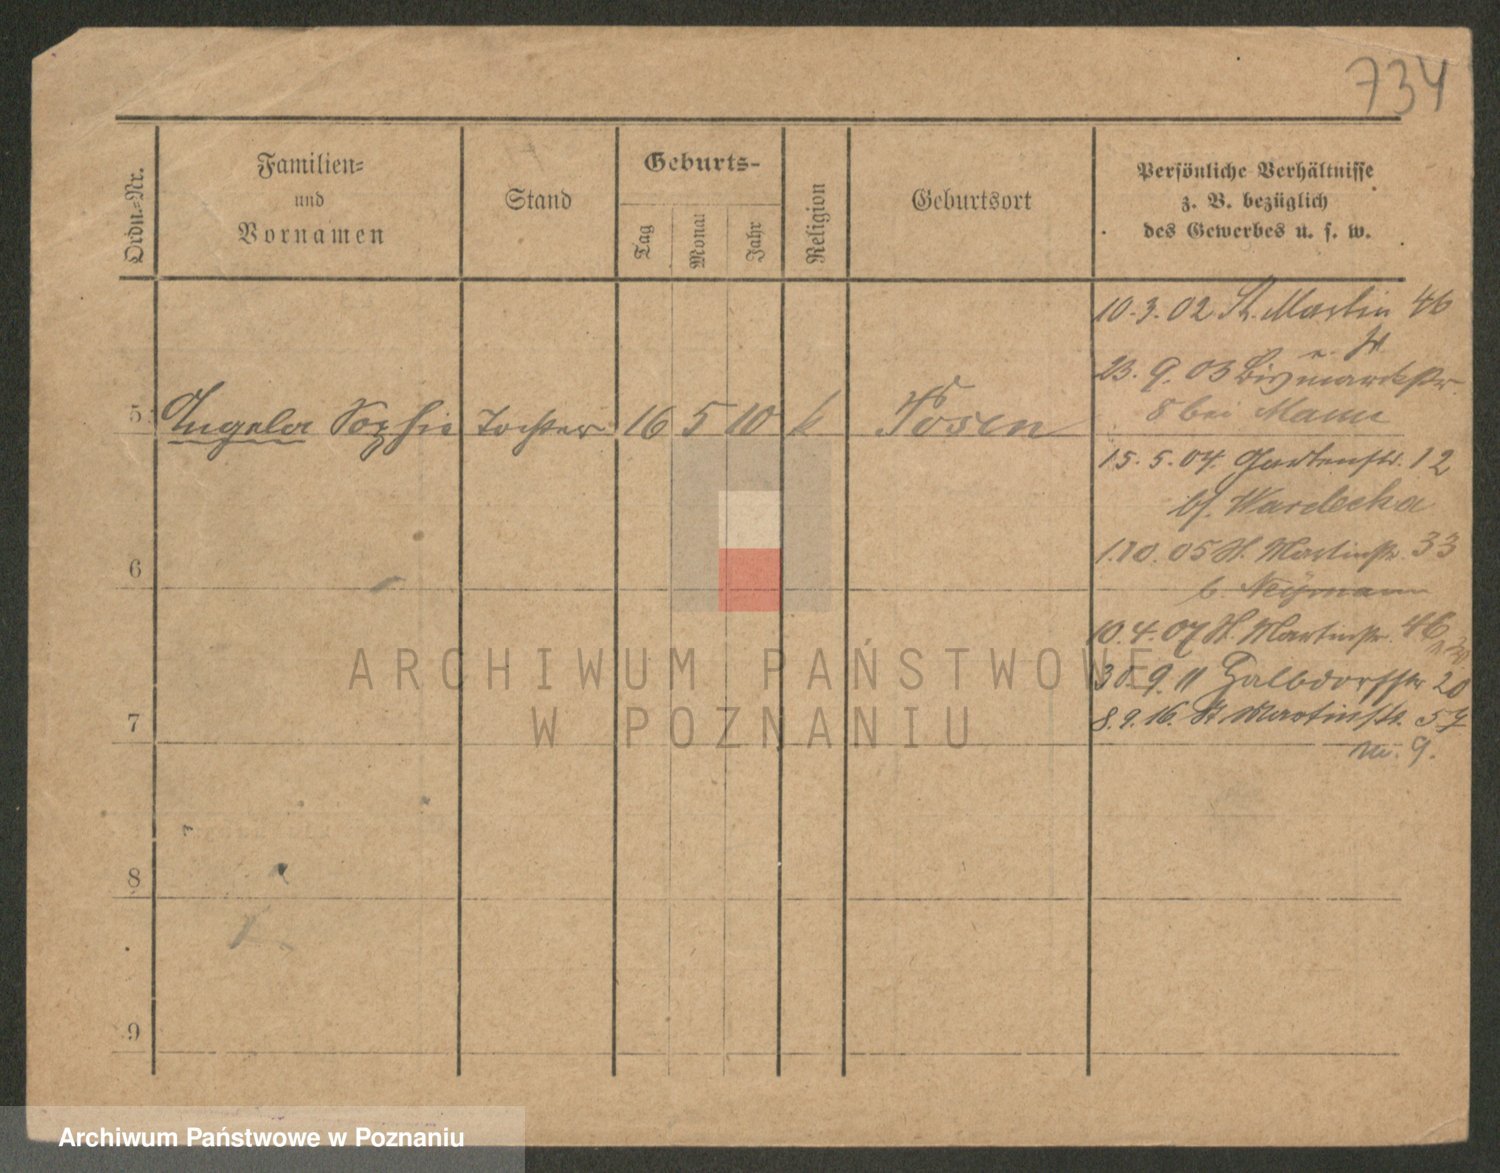 734
Ordn.-Nr.
Familien-
und
Vornamen
Stand
Geburts-
Tag
Monat
Jahr
Religion
Geburtsort
Persönliche Verhältnisse
z. B. bezüglich
des Gewerbes u. s. w.
10.3.02 St. Martin 46
23.9.03 Bismarckstr
8 bei Mann
5 Angela Sophie Tochter 16 5 10 k Posen
15.5.04. Gartenstr. 12
bf. Wardecka
1.10.05 St. Martinstr. 33
b. Neymann
6
10.4.07 St. Martinstr. 46
30.9.11 Halbdorfstr 20
8.9.16. St. Martinstr. 57
w. 9.
7
8
9
ARCHIWUM PAŃSTWOWE
W POZNANIU
Archiwum Państwowe w Poznaniu